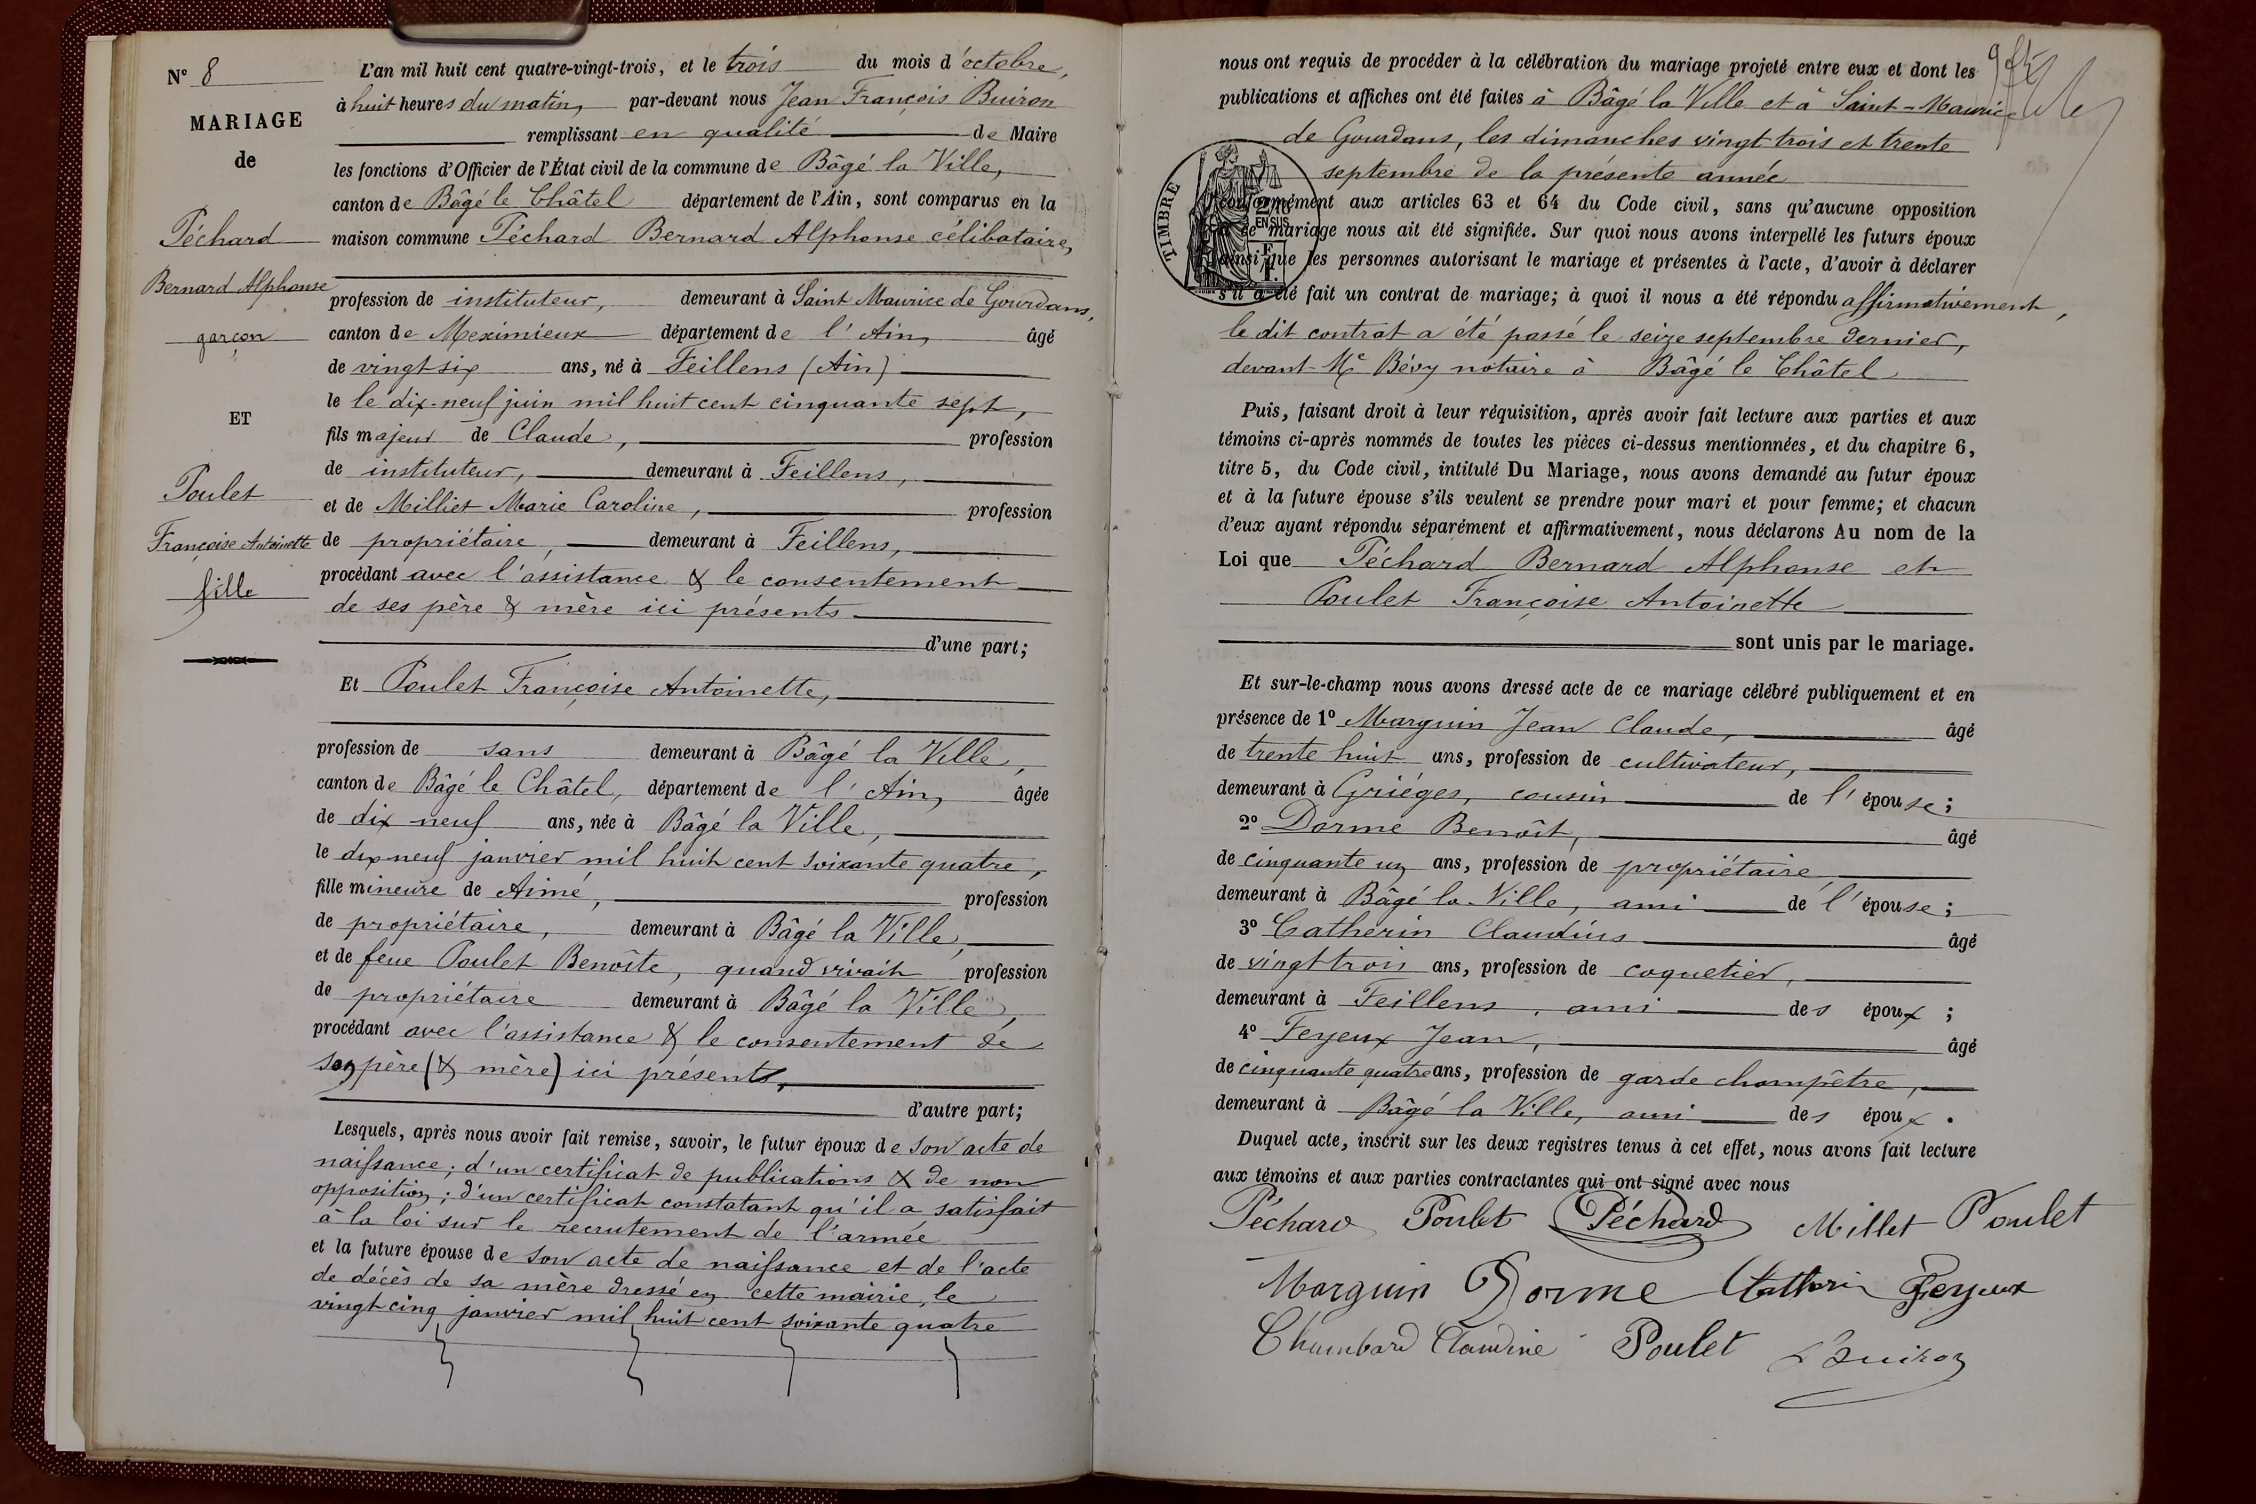 N° 8
MARIAGE
de
Péchard
Bernard Alphonse
garçon
ET
Poulet
Françoise Antoinette
fille
L'an mil huit cent quatre-vingt-trois, et le trois du mois d'octobre,
à huit heures du matin, par-devant nous Jean François Buiron
remplissant en qualité de Maire
les fonctions d'Officier de l'État civil de la commune de Bâgé la Ville,
canton de Bâgé le Châtel département de l'Ain, sont comparus en la
maison commune Péchard Bernard Alphonse célibataire,
profession de instituteur, demeurant à Saint Maurice de Gourdans,
canton de Meximieux département de l'Ain, âgé
de vingt-six ans, né à Feillens (Ain)
le le dix-neuf juin mil huit cent cinquante sept,
fils majeur de Claude, profession
de instituteur, demeurant à Feillens,
et de Milliet Marie Caroline, profession
de propriétaire, demeurant à Feillens,
procédant avec l'assistance & le consentement
de ses père & mère ici présents
d'une part;
Et Poulet Françoise Antoinette,
profession de sans demeurant à Bâgé la Ville,
canton de Bâgé le Châtel, département de l'Ain, âgée
de dix neuf ans, née à Bâgé la Ville,
le dix neuf janvier mil huit cent soixante quatre,
fille mineure de Aimé, profession
de propriétaire, demeurant à Bâgé la Ville,
et de feue Poulet Benoîte, quand vivait profession
de propriétaire demeurant à Bâgé la Ville,
procédant avec l'assistance & le consentement de
son père (& mère) ici présents,
d'autre part;
Lesquels, après nous avoir fait remise, savoir, le futur époux de son acte de
naissance; d'un certificat de publications & de non
opposition; d'un certificat constatant qu'il a satisfait
à la loi sur le recrutement de l'armée
et la future épouse de son acte de naissance et de l'acte
de décès de sa mère dressé en cette mairie, le
vingt cinq janvier mil huit cent soixante quatre
nous ont requis de procéder à la célébration du mariage projeté entre eux et dont les
publications et affiches ont été faites à Bâgé la Ville et à Saint-Maurice
de Gourdans, les dimanches vingt trois et trente
septembre de la présente année
conformément aux articles 63 et 64 du Code civil, sans qu'aucune opposition
à ce mariage nous ait été signifiée. Sur quoi nous avons interpellé les futurs époux
ainsi que les personnes autorisant le mariage et présentes à l'acte, d'avoir à déclarer
s'il a été fait un contrat de mariage; à quoi il nous a été répondu affirmativement,
le dit contrat a été passé le seize septembre dernier,
devant Me Bévy notaire à Bâgé le Châtel
TIMBRE
2/10
EN SUS
Puis, faisant droit à leur réquisition, après avoir fait lecture aux parties et aux
témoins ci-après nommés de toutes les pièces ci-dessus mentionnées, et du chapitre 6,
titre 5, du Code civil, intitulé Du Mariage, nous avons demandé au futur époux
et à la future épouse s'ils veulent se prendre pour mari et pour femme; et chacun
d'eux ayant répondu séparément et affirmativement, nous déclarons Au nom de la
Loi que Péchard Bernard Alphonse et
Poulet Françoise Antoinette
sont unis par le mariage.
Et sur-le-champ nous avons dressé acte de ce mariage célébré publiquement et en
présence de 1° Marguin Jean Claude, âgé
de trente huit ans, profession de cultivateur,
demeurant à Grièges, cousin de l'épouse;
2° Dorme Benoît, âgé
de cinquante un ans, profession de propriétaire,
demeurant à Bâgé la Ville, ami de l'épouse;
3° Catherin Claudius âgé
de vingt trois ans, profession de coquetier,
demeurant à Feillens, ami des époux;
4° Feyeux Jean, âgé
de cinquante quatre ans, profession de garde champêtre,
demeurant à Bâgé la Ville, ami des époux.
Duquel acte, inscrit sur les deux registres tenus à cet effet, nous avons fait lecture
aux témoins et aux parties contractantes qui ont signé avec nous
Péchard Poulet Péchard Millet Poulet
Marguin Dorme Catherin Feyeux
Chambard Claudine Poulet Buiron